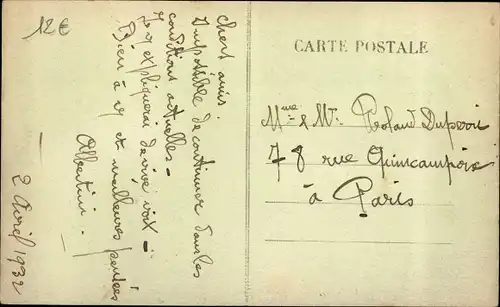 12€
Chers amis.
Impossible de continuer dans les
conditions actuelles –
Je expliquerai de vive voix –
Bien à et meilleures pensées
Albertini.
2 Avril 1932
CARTE POSTALE
Mme & Mr. Roland Duperri
78 rue Quincampoix
à Paris